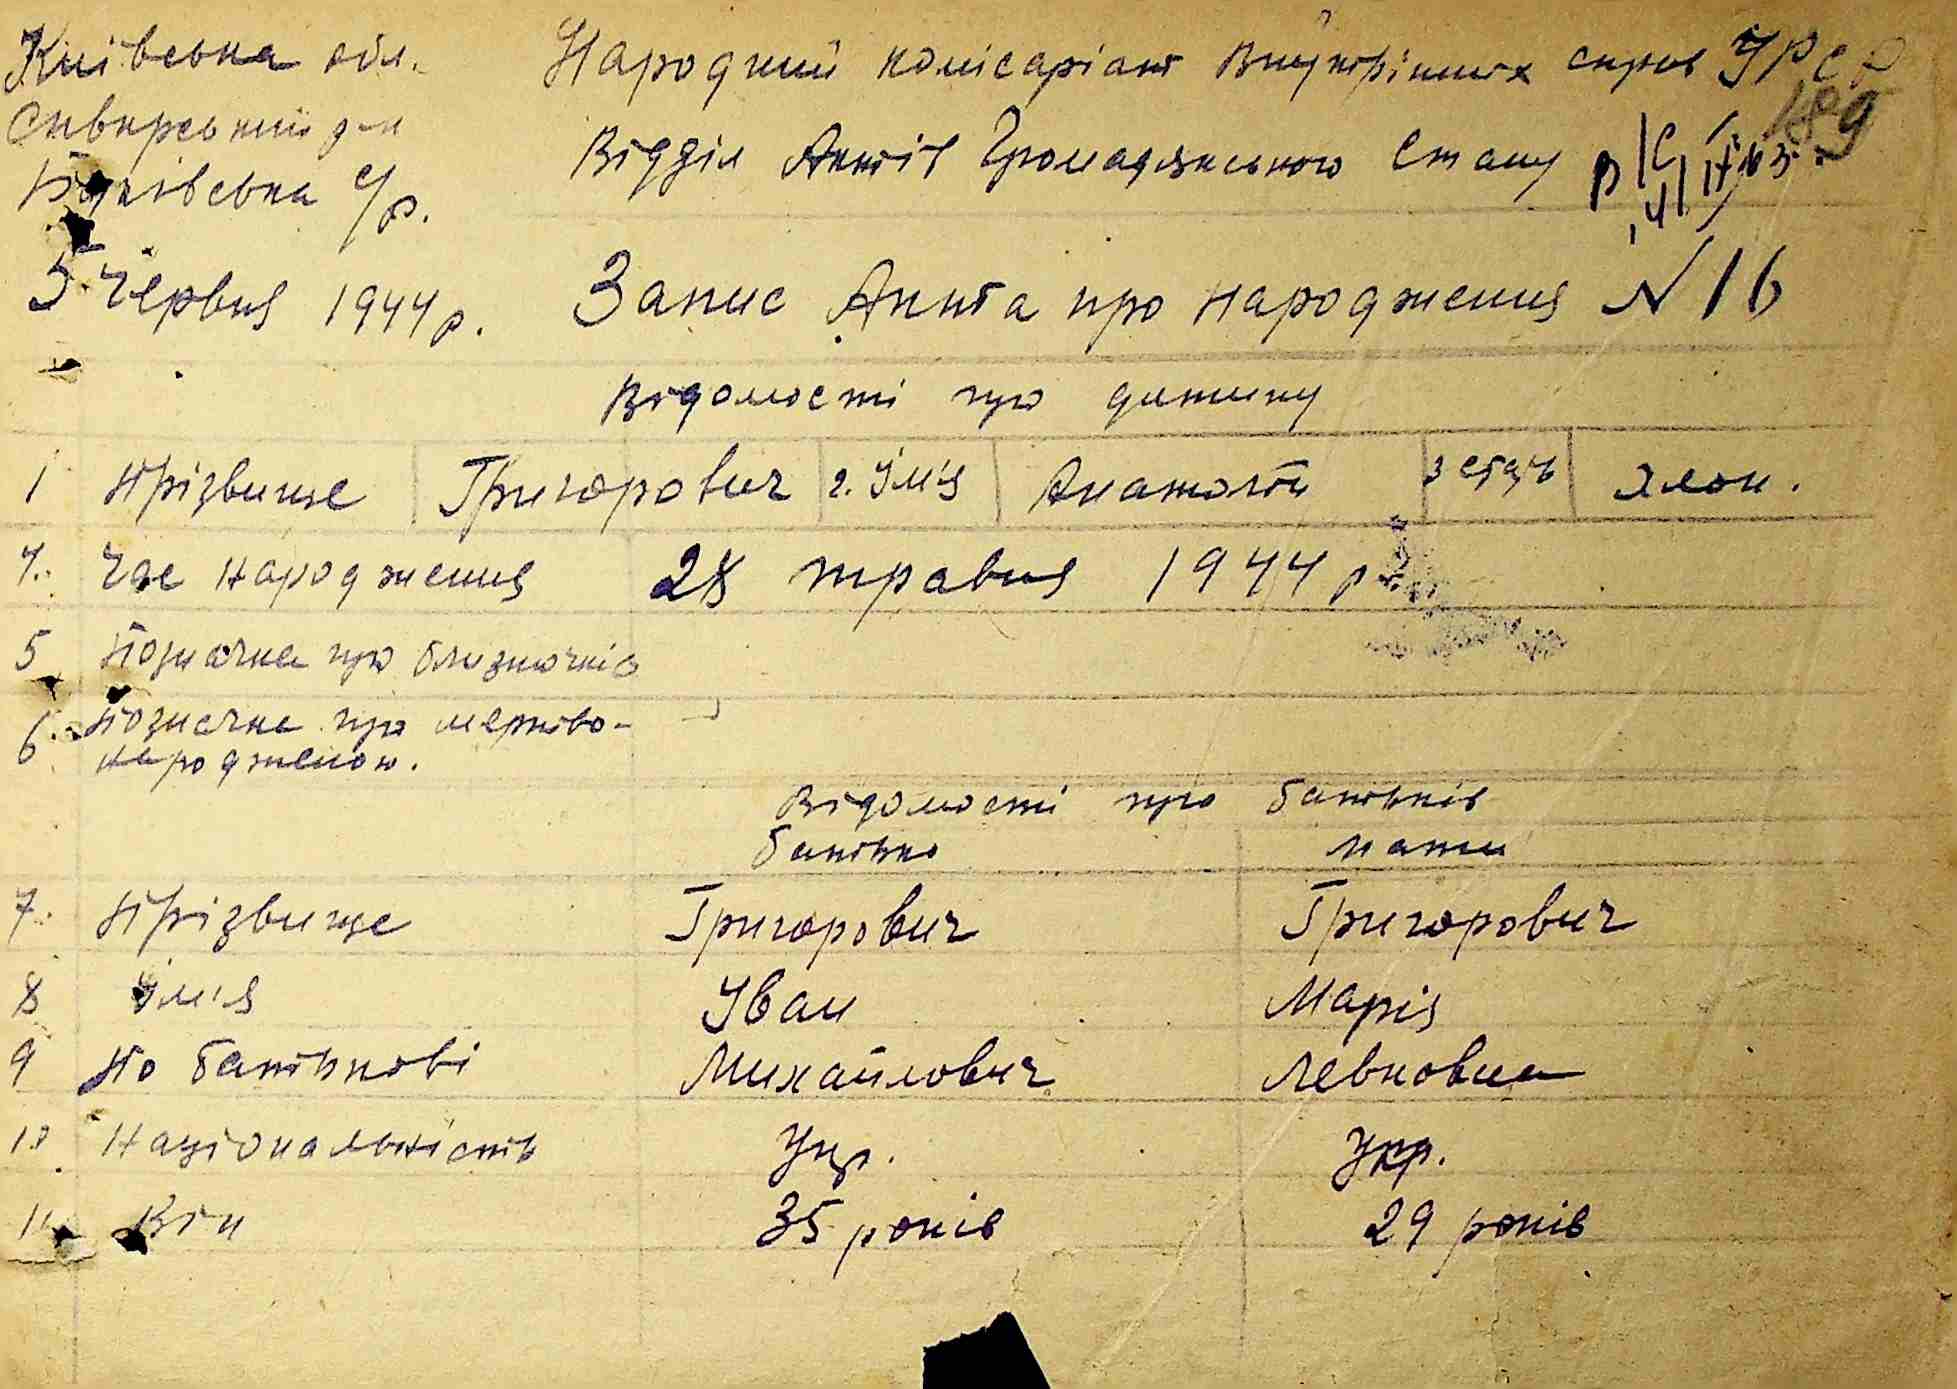 Київська обл.
Народний комісаріат Внутрішніх справ УРСР
Сквирський р-н
189
Відділ Актів Громадянського Стану
с/р.
5 Червня 1944 р.
Запис Акта про народження N 16
Відомості про дитину
1 Прізвище Григорович 2. Ім'я Анатолій 3 стать хлоп.
4. Час народження 28 травня 1944 р.
5 Позначка про близнючків
6. Позначка про мертво-
народженою.
Відомості про батьків
батько мати
7. Прізвище Григорович Григорович
8 Ім'я Іван Марія
9 По батькові Михайлович Левковна
10 Національність Укр. Укр.
11 Вік 35 років 29 років